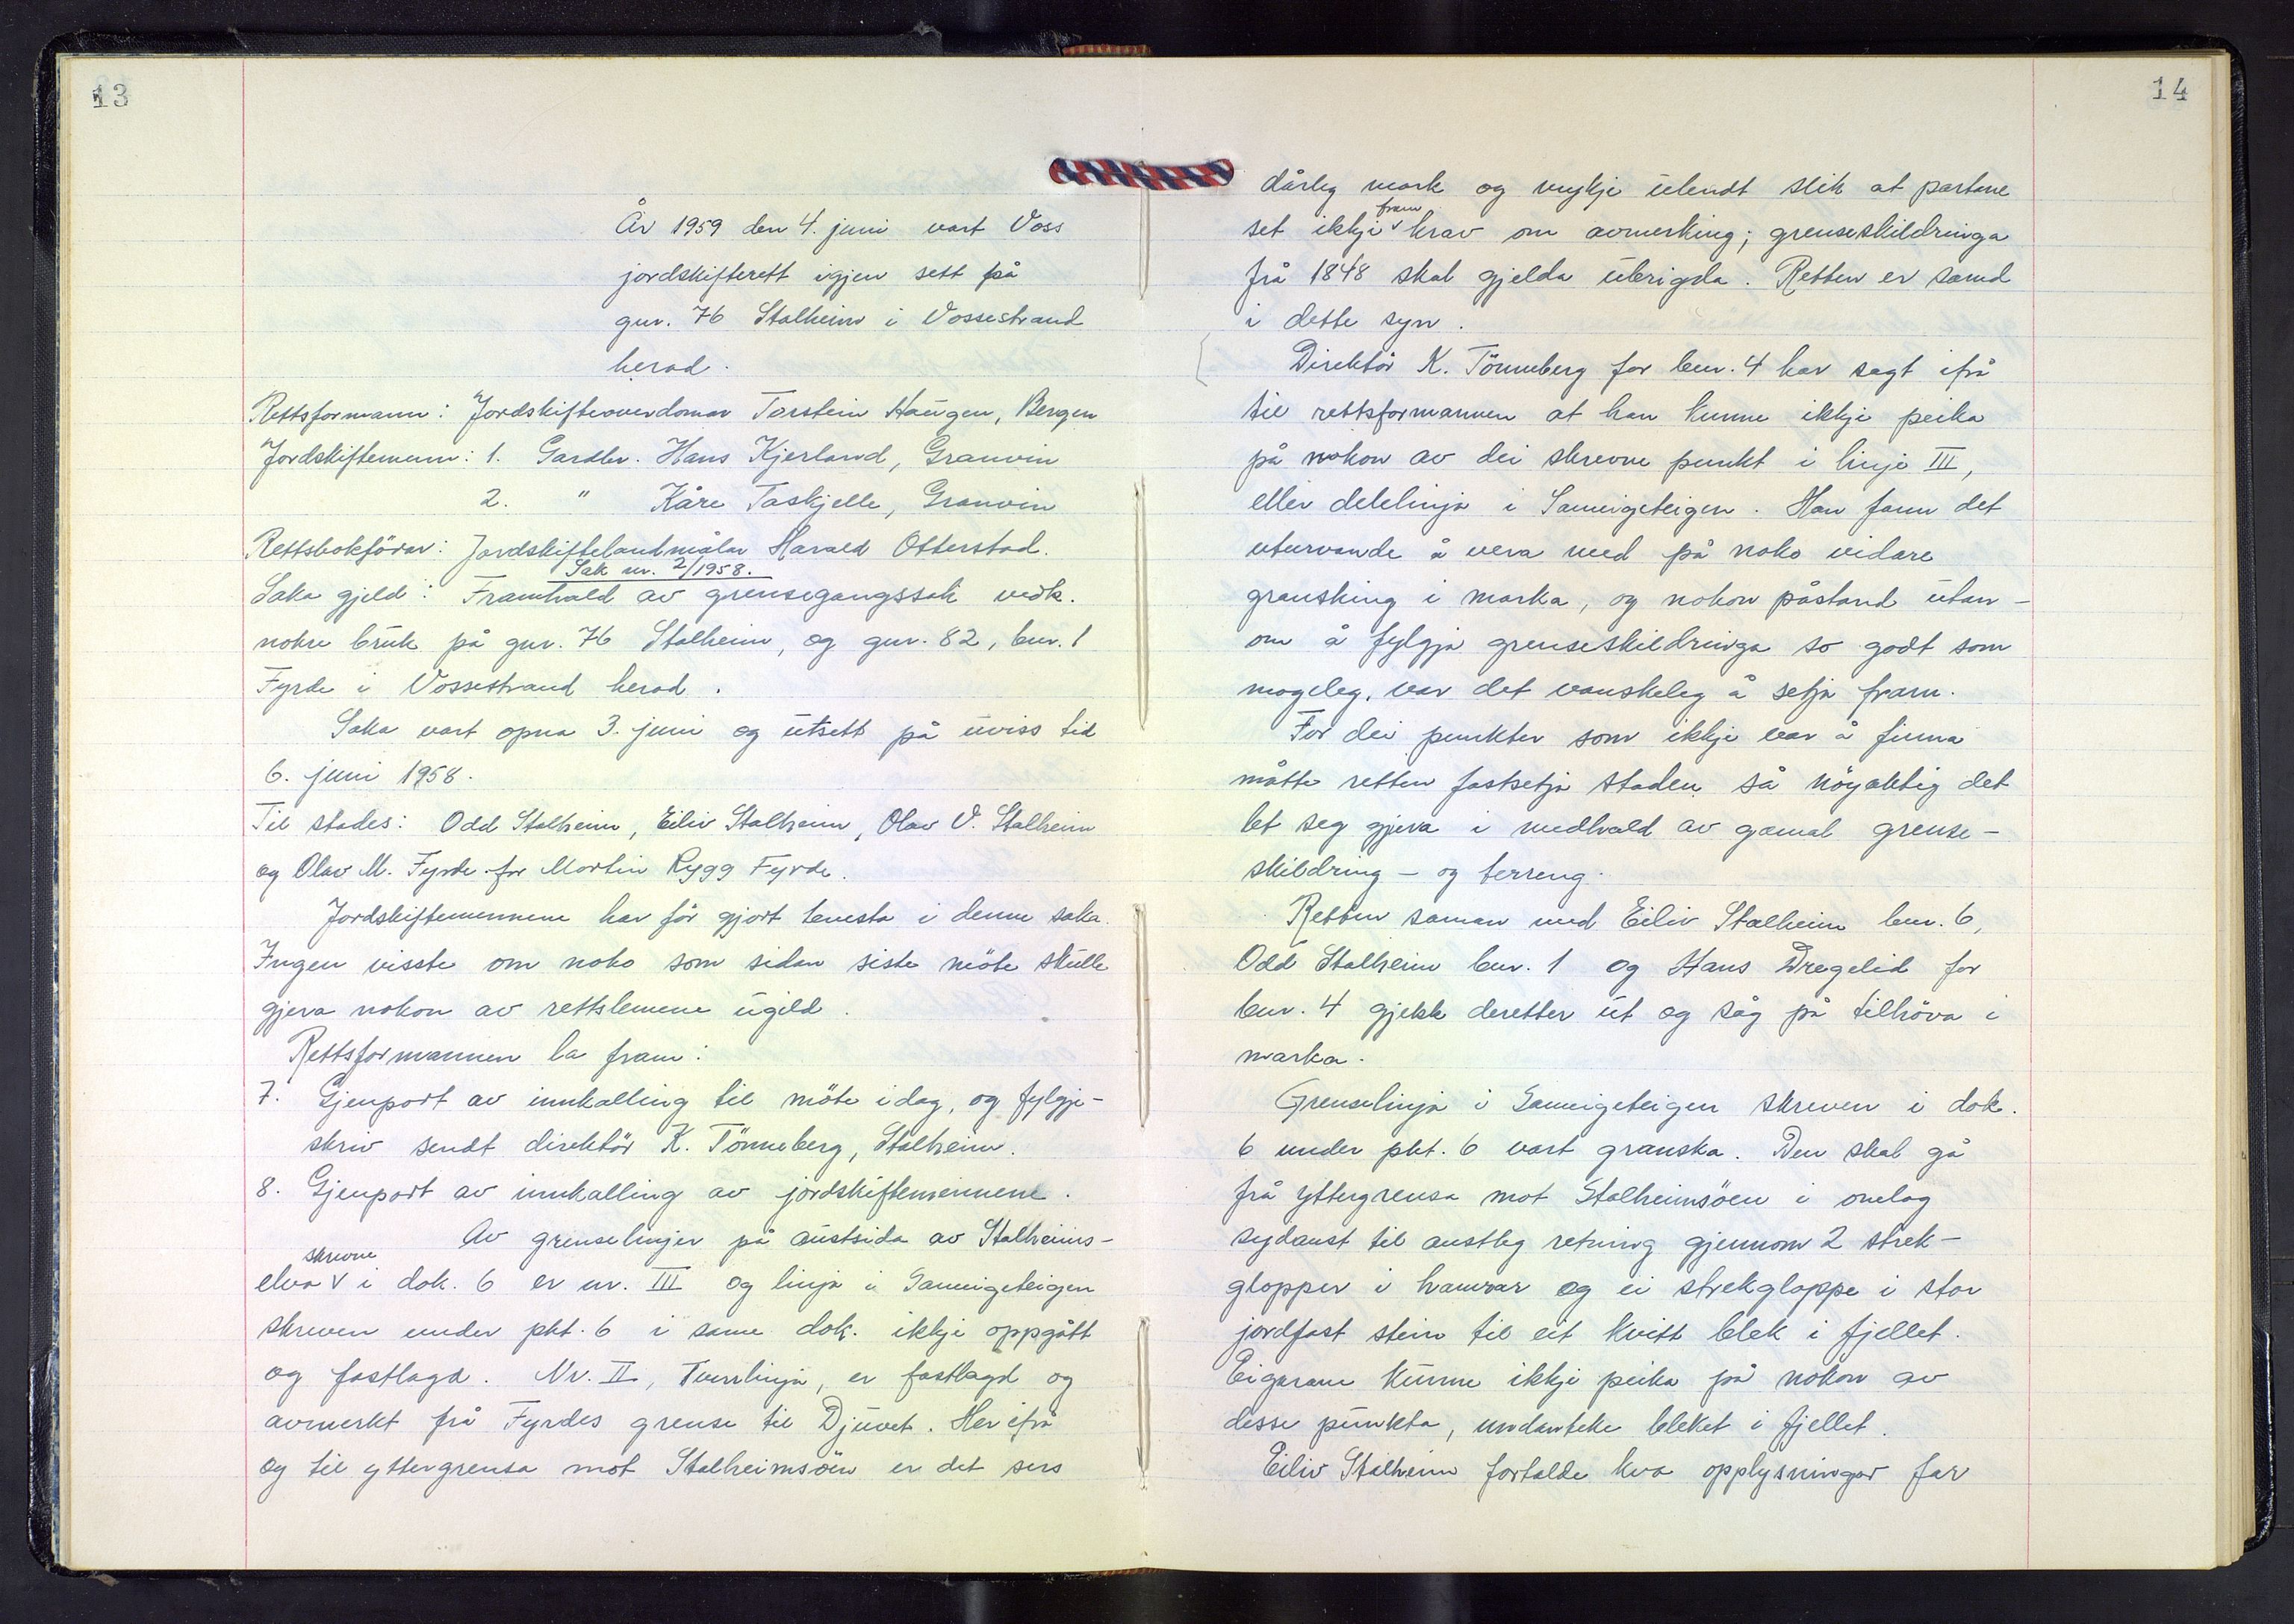 13
År 1959 den 4. juni vart Voss
jordskifterett igjen sett på
gnr. 76 Stalheim i Vossestrand
herad.
Rettsformann: Jordskifteoverdomar Torstein Haugen, Bergen
Jordskiftemenn: 1. Gardbr. Hans Kjerland, Granvin
2. " Kåre Taskjelle, Granvin
Rettsbokförar: Jordskiftelandmålar Harald Otterstad.
Sak nr. 2/1958.
Saka gjeld: Framhald av grensegangssak vedk.
nokre bruk på gnr. 76 Stalheim, og gnr. 82, bnr. 1
Fyrde i Vossestrand herad.
Saka vart opna 3. juni og utsett på uviss tid
6. juni 1958.
Til stades: Odd Stalheim, Eiliv Stalheim, Olav V. Stalheim
og Olav M. Fyrde for Martin Rygg Fyrde.
Jordskiftemennene har för gjort tenesta i denne saka.
Ingen visste om noko som sidan siste möte skulle
gjera nokon av rettslemene ugild.
Rettsformannen la fram:
7. Gjenpart av innkalling til möte idag, og fylgje-
skriv sendt direktör K. Tönneberg, Stalheim.
8. Gjenpart av innkalling av jordskiftemennene.
Av grenselinjer på austsida av Stalheims-
skrevne
elva V i dok. 6 er nr. III og linja i Sameigeteigen
skreven under pkt. 6 i same dok. ikkje oppgått
og fastlagd. Nr. II, Tverrlinja, er fastlagd og
avmerkt frå Fyrdes grense til Djuvet. Her ifrå
og til yttergrensa mot Stalheimsöen er det sers
14
dårleg mark og mykje ulendt slik at partane
fram
set ikkje V krav om avmerking; grenseskildringa
frå 1848 skal gjelda ubrigda. Retten er samd
i dette syn.
Direktör K. Tönneberg for bnr. 4 har sagt ifrå
til rettsformannen at han kunne ikkje peika
på nokon av dei skrevne punkt i linje III,
eller delelinja i Sameigeteigen. Han fann det
uturvande å vera med på noko vidare
gransking i marka, og nokon påstand utan-
om å fylgja grenseskildringa so godt som
mogeleg, var det vanskeleg å setja fram.
For dei punkter som ikkje var å finna
måtte retten fastsetja staden så nöyaktig det
let seg gjera i medhald av gamal grense-
skildring - og terreng.
Retten saman med Eiliv Stalheim bnr. 6,
Odd Stalheim bnr. 1 og Hans Dregelid for
bnr. 4 gjekk deretter ut og såg på tilhöva i
marka.
Grenselinja i Sameigeteigen skreven i dok.
6 under pkt. 6 vart granska. Den skal gå
frå yttergrensa mot Stalheimsöen i omlag
sydaust til austleg retning gjennom 2 strek-
glopper i hamrar og ei strekgloppe i stor
jordfast stein til eit kvitt blek i fjellet.
Eigarane kunne ikkje peika på nokon av
desse punkta, undanteke bleket i fjellet.
Eiliv Stalheim fortalde kva opplysningar far